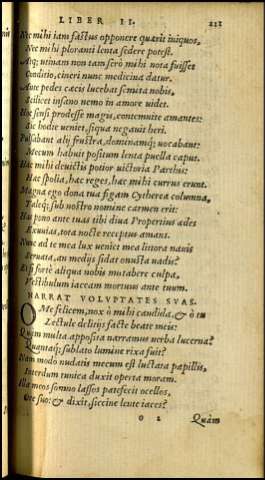 LIBER II. 211
Nec mihi iam fastus opponere quærit iniquos,
Nec mihi ploranti lenta sedere potest.
Atq; utinam non tam serò mihi nota fuisset
Conditio, cineri nunc medicina datur.
Ante pedes cæcis lucebat semita nobis,
Scilicet insano nemo in amore uidet.
Hoc sensi prodesse magis, contemnite amantes:
Sic hodie ueniet, siqua negauit heri.
Pulsabant alij frustra, dominamq; uocabant:
Mecum habuit positum lenta puella caput.
Hæc mihi deuictis potior uictoria Parthis:
Hæc spolia, hæc reges, hæc mihi currus erunt.
Magna ego dona tua figam Cytherea columna,
Taleq; sub nostro nomine carmen erit:
Has pono ante tuas tibi diua Propertius ædes
Exuuias, tota nocte receptus amans.
Nunc ad te mea lux ueniet mea littora nauis
Seruata, an medijs sidat onusta uadis?
Et si fortè aliqua nobis mutabere culpa,
Vestibulum iaceam mortuus ante tuum.
NARRAT VOLVPTATES SVAS.
O Me felicem, nox ô mihi candida, & ô tu
Lectule delitijs facte beate meis:
Quam multa apposita narramus uerba lucerna?
Quantaq; sublato lumine rixa fuit?
Nam modo nudatis mecum est luctata papillis,
Interdum tunica duxit operta moram.
Illa meos somno lassos patefecit ocellos,
Ore suo: & dixit, siccine lente iaces?
O 2 Quàm